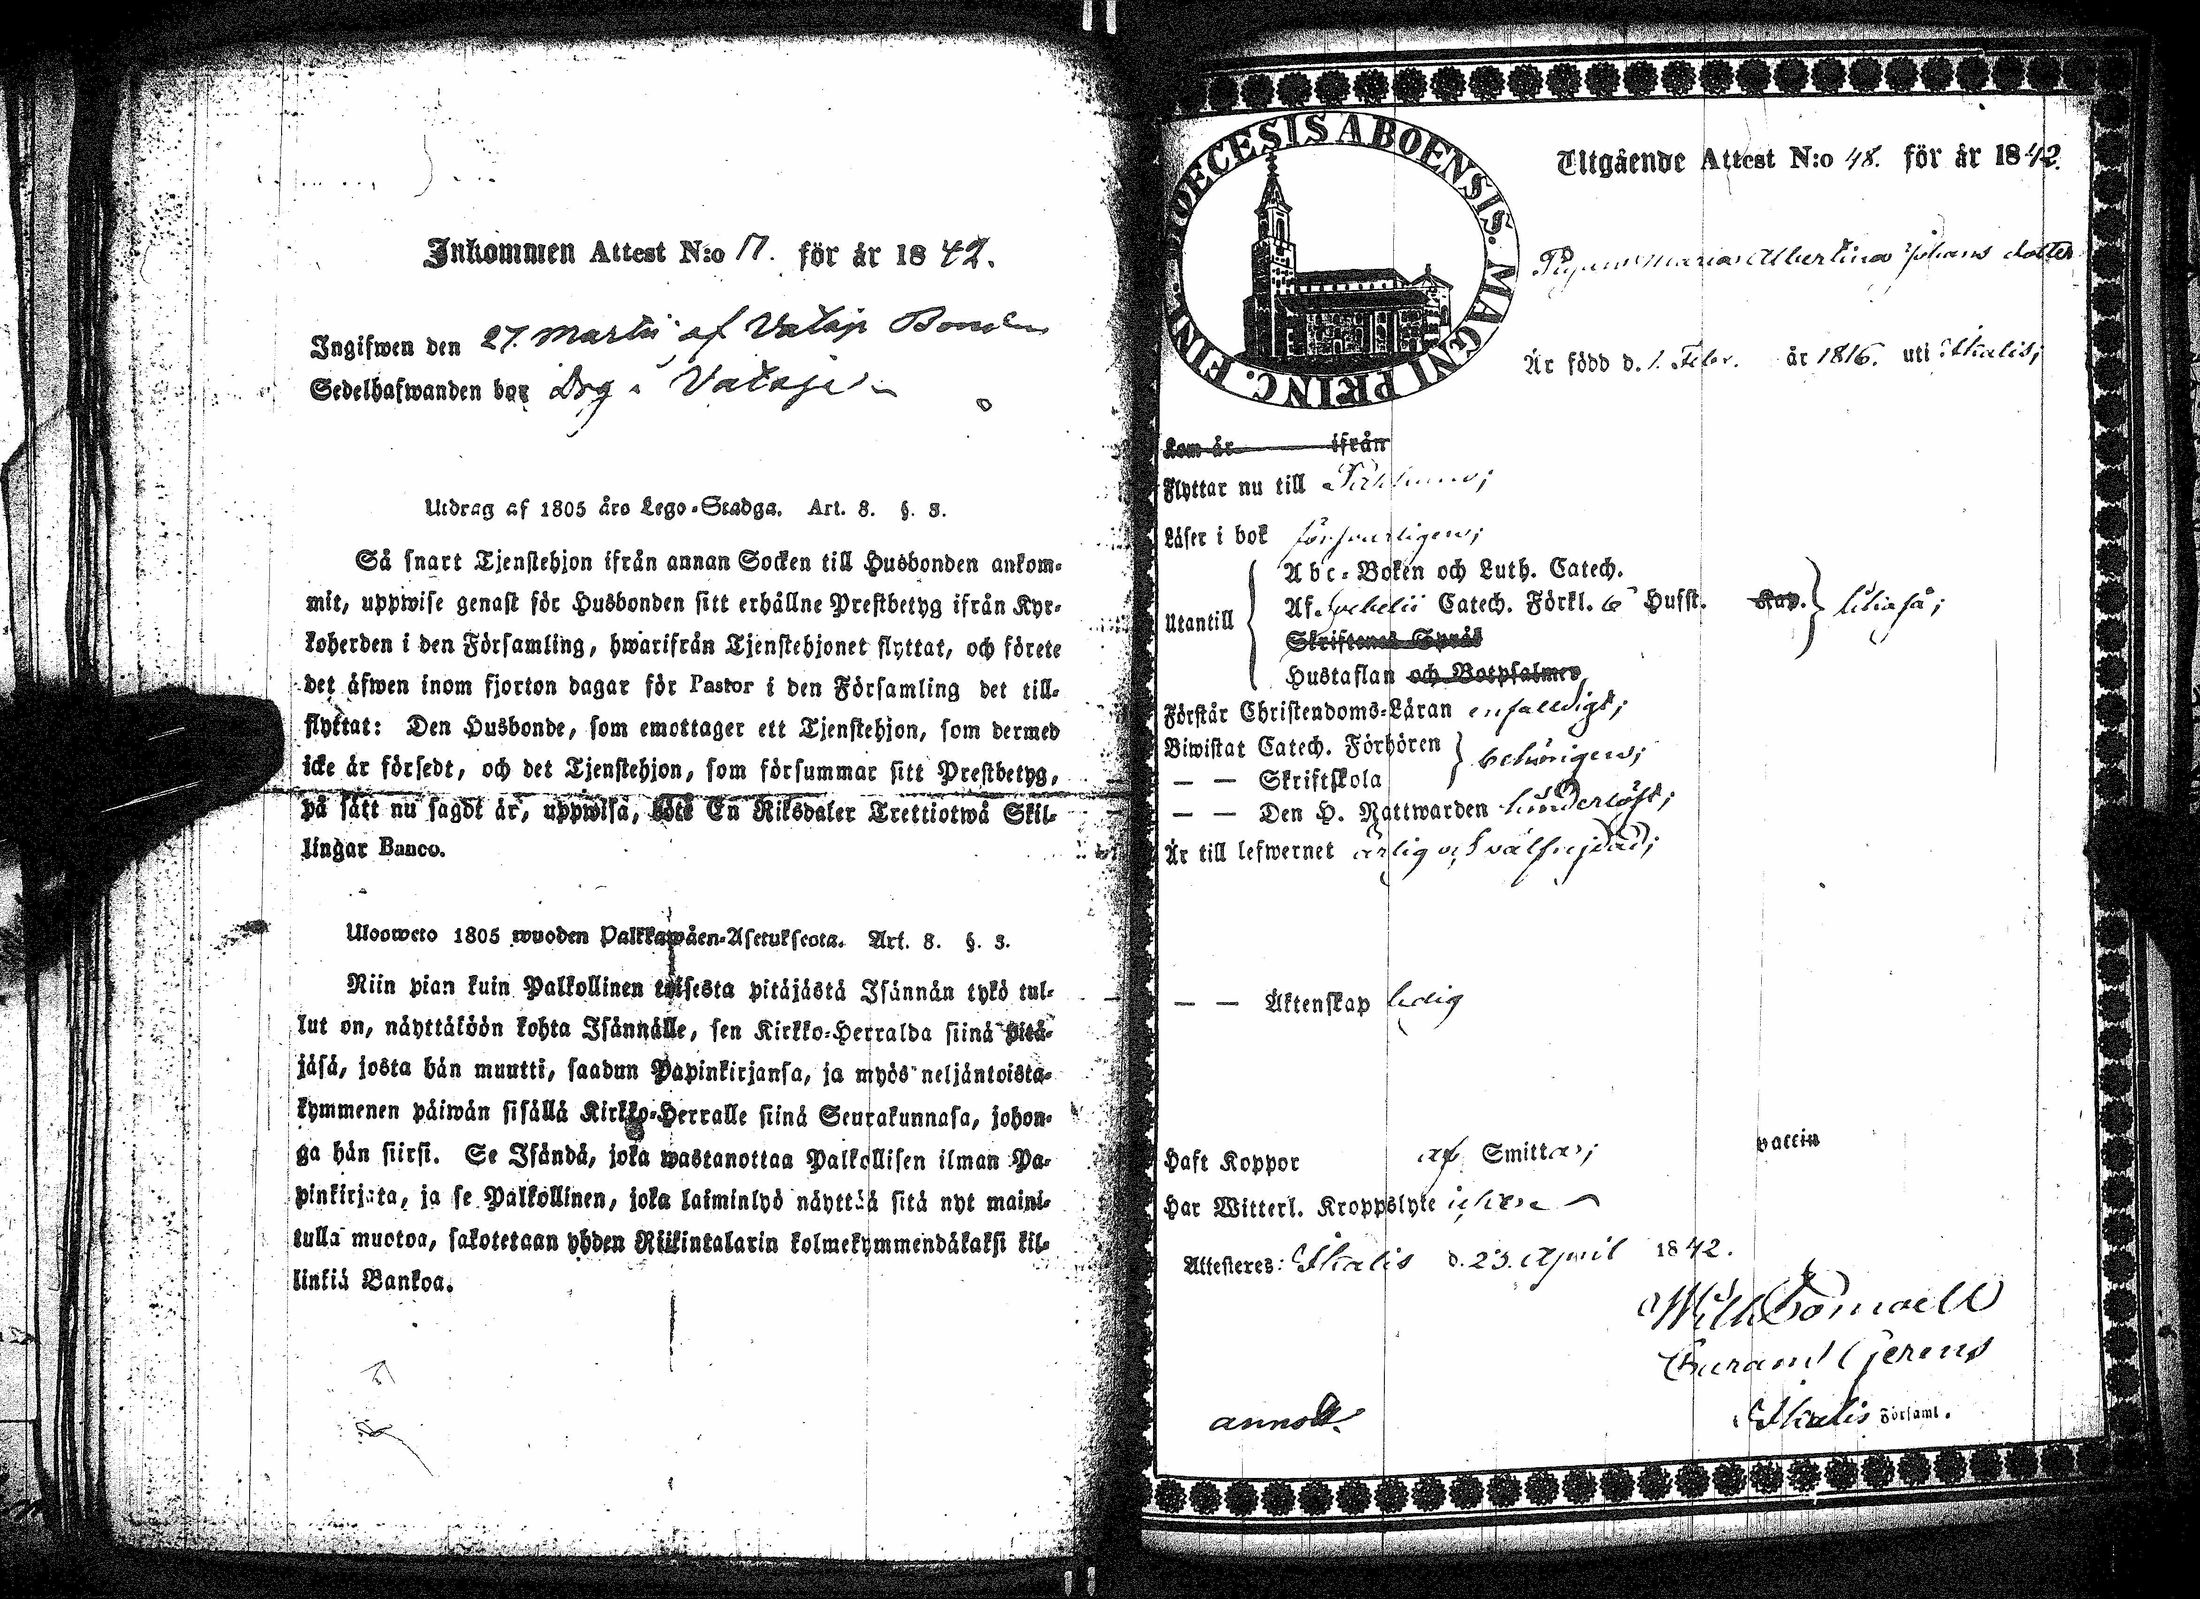 Inkommen Attest N:o 17. för år 1842.
Ingifwen den 27. Martii af Vatsja Bonden
Sedelhafwanden bor Drg i Vatsja
Utdrag af 1805 års Lego-Stadga. Art. 8. §. 3.
Så snart Tjenstehjon ifrån annan Socken till Husbonden ankom-
mit, uppwise genast för Husbonden sitt erhållne Prestbetyg ifrån Kyr-
koherden i den Församling, hwarifrån Tjenstehjonet flyttat, och förete
det äfwen inom fjorton dagar för Pastor i den Församling det till-
flyttat: Den Husbonde, som emottager ett Tjenstehjon, som dermed
icke är försedt, och det Tjenstehjon, som försummar sitt Prestbetyg,
på sätt nu sagdt är, uppwisa, böte En Riksdaler Trettiotwå Skil-
lingar Banco.
Ulosweto 1805 wuoden Palkkawäen-Asetuksesta. Art. 8. §. 3.
Niin pian kuin Palkollinen toisesta pitäjästä Isännän tykö tul-
lut on, näyttäköön kohta Isännälle, sen Kirkko-Herralda siinä pitä-
jäsä, josta hän muutti, saadun Papinkirjansa, ja myös neljäntoista-
kymmenen päiwän sisällä Kirkko-Herralle siinä Seurakunnasa, johon-
ga hän siirsi. Se Isändä, joka wastanottaa Palkollisen ilman Pa-
pinkirjata, ja se Palkollinen, joka laiminlyö näyttää sitä nyt maini-
tulla muotoa, sakotetaan yhden Riikintalarin kolmekymmendäkaksi kil-
linkiä Bankoa.
DIOECESIS ABOENSIS. MAGNI PRINC. FINL.
Utgående Attest N:o 48. för år 1842.
Pigan Maria Albertina Johans dotter
Är född d. 1. Febr. år 1816. uti Ikalis;
Kom år ifrån
Flyttar nu till
Läser i bok försvarligen;
Utantill
Abc-Boken och Luth. Catech.
Af Svebelii Catech. Förkl. 6 Hufst. Kap. lika så;
Skriftenes Språk
Hustaflan och Botpsalmer
Förstår Christendoms-Läran enfaldigt;
Biwistat Catech. Förhören
— — Skriftskola behörigen;
— — Den H. Nattwarden hinderlöst;
Är till lefwernet ärlig och välfrejdad;
— — Äktenskap ledig
Haft Koppor af Smittan; vaccin
Har Witterl. Kroppslyte icke
Attesteres: Ikalis d. 23. April 1842.
Wilh. Bomaell
Curam Gerens
i Ikalis Församl.
annot.